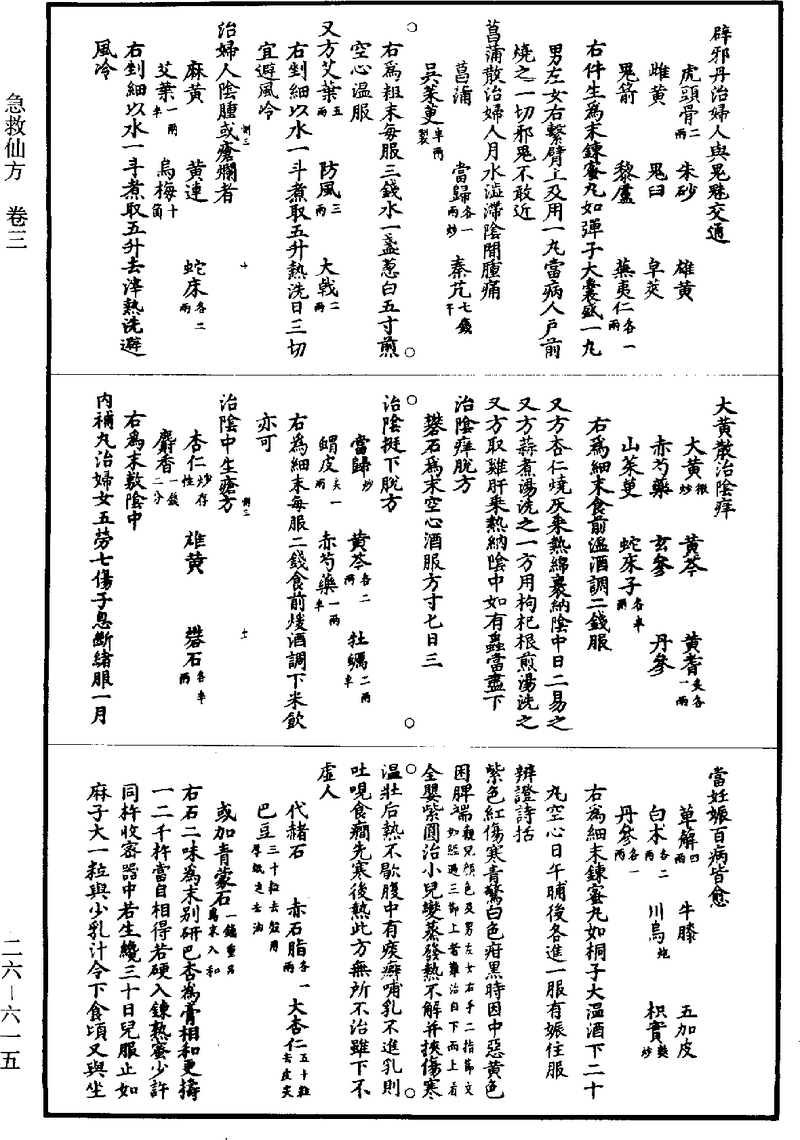 急救仙方　卷三
辟邪丹治婦人與鬼魅交通
虎頭骨二兩　朱砂　雄黃
雌黃　鬼臼　皁莢
鬼箭　藜蘆　蕪夷仁各一兩
右件生爲末鍊蜜丸如彈子大囊盛一丸
男左女右繫臂上及用一丸當病人戶前
燒之一切邪鬼不敢近
菖蒲散治婦人月水澁滯陰間腫痛
菖蒲　當歸各一兩炒　秦艽七錢半
吳茱萸半兩製
右爲粗末每服三錢水一盞葱白五寸煎
空心溫服
又方艾葉五兩　防風三兩　大戟二兩
右剉細以水一斗煮取五升熱洗日三切
宜避風冷
治婦人陰腫或瘡爛者
麻黃　黃連　蛇床各二兩
艾葉一兩半　烏梅十箇
右剉細以水一斗煮取五升去滓熱洗避
風冷
大黃散治陰痒
大黃微炒　黃芩　黃耆炙各一兩
赤芍藥　玄參　丹參
山茱萸　蛇床子各半兩
右爲細末食前溫酒調二錢服
又方杏仁燒灰乘熱綿裹納陰中日二易之
又方蒜煮湯洗之一方用枸杞根煎湯洗之
又方取雞肝乘熱納陰中如有蟲當盡下
治陰痒脫方
礬石爲末空心酒服方寸匕日三
治陰挺下脫方
當歸炒　黃芩各二兩　牡蠣二兩半
蝟皮炙一兩　赤芍藥一兩半
右爲細末每服二錢食前煖酒調下米飲
亦可
治陰中生瘡方
杏仁炒存性　雄黃　礬石各半兩
麝香一錢二分
右爲末敷陰中
內補丸治婦女五勞七傷子息斷緒服一月
當妊娠百病皆愈
萆解四兩　牛膝　五加皮
白朮各二兩　川烏炮　枳實麩炒
丹參各一兩
右爲細末鍊蜜丸如桐子大溫酒下二十
丸空心日午晡後各進一服有娠住服
辨證詩括
紫色紅傷寒青驚白色疳黑時因中惡黃色
困脾端觀兒顏色及男左女右手二指節文如經過三節上者難治自下而上看
全嬰紫圓治小兒變蒸發熱不解并挾傷寒
溫壯后熱不歇腹中有痰癖哺乳不進乳則
吐哯食癇先寒後熱此方無所不治雖下不
虛人
代赭石　赤石脂各一兩　大杏仁五十粒去皮尖
巴豆三十粒去殼用厚紙迮去油
或加青蒙石一錢重另爲末入和
右石二味爲末別研巴杏爲膏相和更擣
一二千杵當自相得若硬入鍊熟蜜少許
同杵收密器中若生纔三十日兒服止如
麻子大一粒與少乳汁令下食頃又與坐
二六—六一五